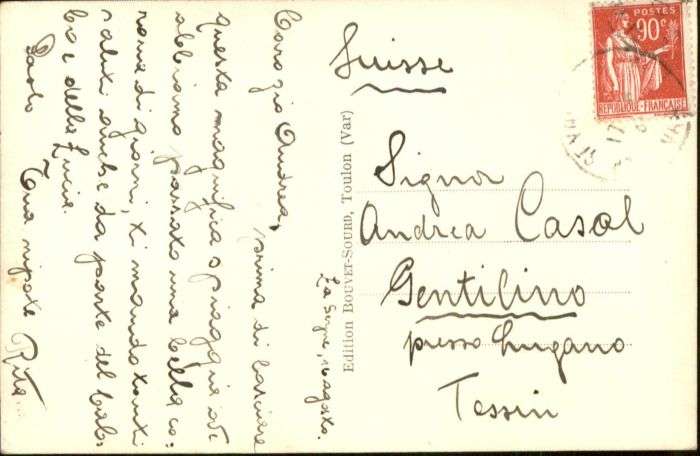 Caro zio Andrea,
prima di lasciare
questa magnifica spiaggia ove
abbiamo passato una bella co-
rona di giorni, ti mando tanti
saluti anche da parte del bab-
bo e della Lucia.
Paolo Tua nipote Rita
La Seyne, 16 agosto.
Edition BOUVET-SOURD, Toulon (Var)
POSTES
90c
REPUBLIQUE-FRANÇAISE
17
Suisse
Signor
Andrea Casal
Gentilino
presso Lugano
Tessin